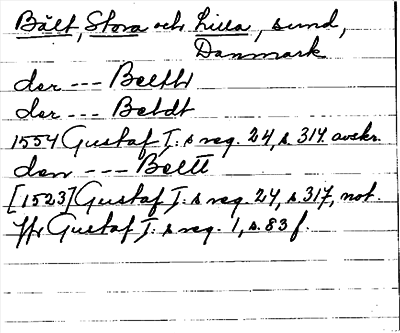 Bält, Stora och Lilla, sund,
Danmark
der --- Beelthr
der --- Betdt
1554 Gustaf I:s reg. 24, s. 317 avskr.
den --- Beltt
[1523] Gustaf I:s reg. 24, s. 317, not.
Jfr Gustaf I:s reg. 1, s. 83 f.